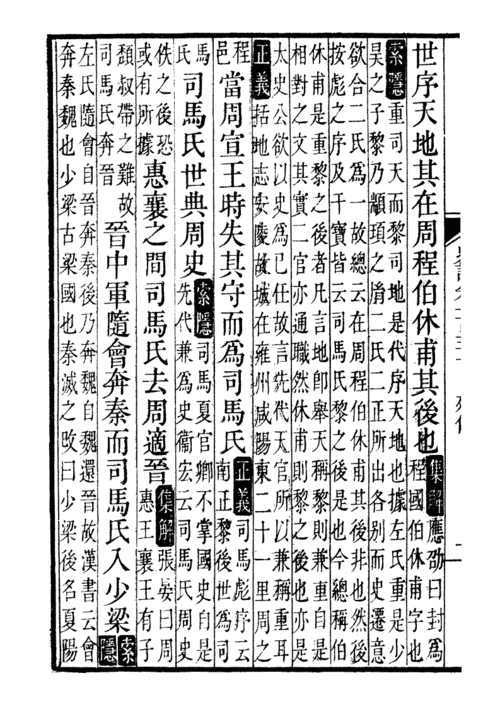 世序天地其在周程伯休甫其後也集解應劭曰封爲
程國伯休甫字也
索隱重司天而黎司地是代序天地也據左氏重是少
昊之子黎乃顓頊之胤二氏二正所出各别而史遷意
欲合二氏爲一故總云在周程伯休甫其後非也然後
按彪之序及干寶皆云司馬氏黎之後是也今總稱伯
休甫是重黎之後者凡言地卽舉天稱黎則兼重自是
相對之文其實二官亦通職然休甫則黎之後也亦是
太史公欲以史爲己任故言先代天官所以兼稱重耳
正義括地志安陵故城在雍州咸陽東二十一里周之
程邑當周宣王時失其守而爲司馬氏正義司馬彪序云
南正黎後世爲司
馬氏司馬氏世典周史索隱司馬夏官卿不掌國史自是
先代兼爲史衞宏云司馬氏周史
佚之後恐
或有所據惠襄之間司馬氏去周適晉集解張晏曰周
惠王襄王有子
頹叔帶之難故
司馬氏奔晉晉中軍隨會奔秦而司馬氏入少梁索隱
左氏隨會自晉奔秦後乃奔魏自魏還晉故漢書云會
奔秦魏也少梁古梁國也秦滅之改曰少梁後名夏陽